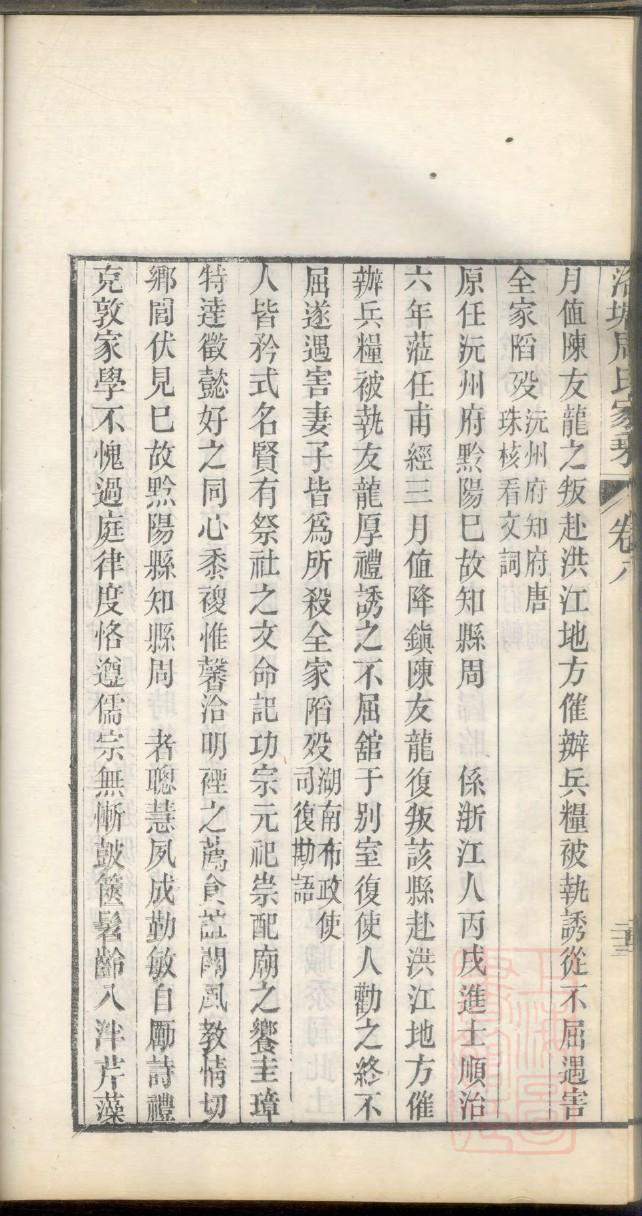 周氏家乘 卷八
月值陳友龍之叛赴洪江地方催辦兵糧被執誘從不屈遇害
全家陷殁沅州府知府唐
珠核看文詞
原任沅州府黔陽巳故知縣周 係浙江人丙戌進士順治
六年蒞任甫經三月值降鎭陳友龍復叛該縣赴洪江地方催
辦兵糧被執友龍厚禮誘之不屈舘于别室復使人勸之終不
屈遂遇害妻子皆爲所殺全家陷殁湖南布政使
司復勘語
人皆矜式名賢有祭社之文命記功宗元祀崇配廟之饗圭璋
特達徽懿好之同心黍稷惟馨洽明禋之薦食誼關風教情切
鄉閭伏見巳故黔陽縣知縣周 者聰慧夙成勤敏自勵詩禮
克敦家學不愧過庭律度恪遵儒宗無慚鼓篋髫齡入泮芹藻